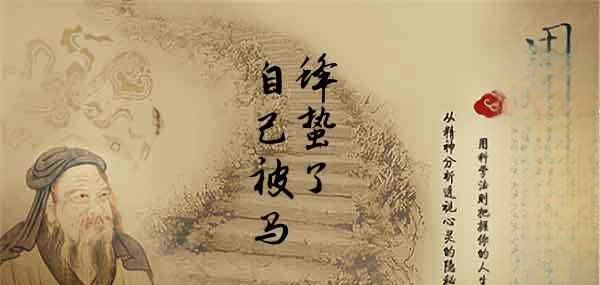 自己被马
绛蛰了
用科学法则把握你的人生
从精神分析透视心灵的隐秘